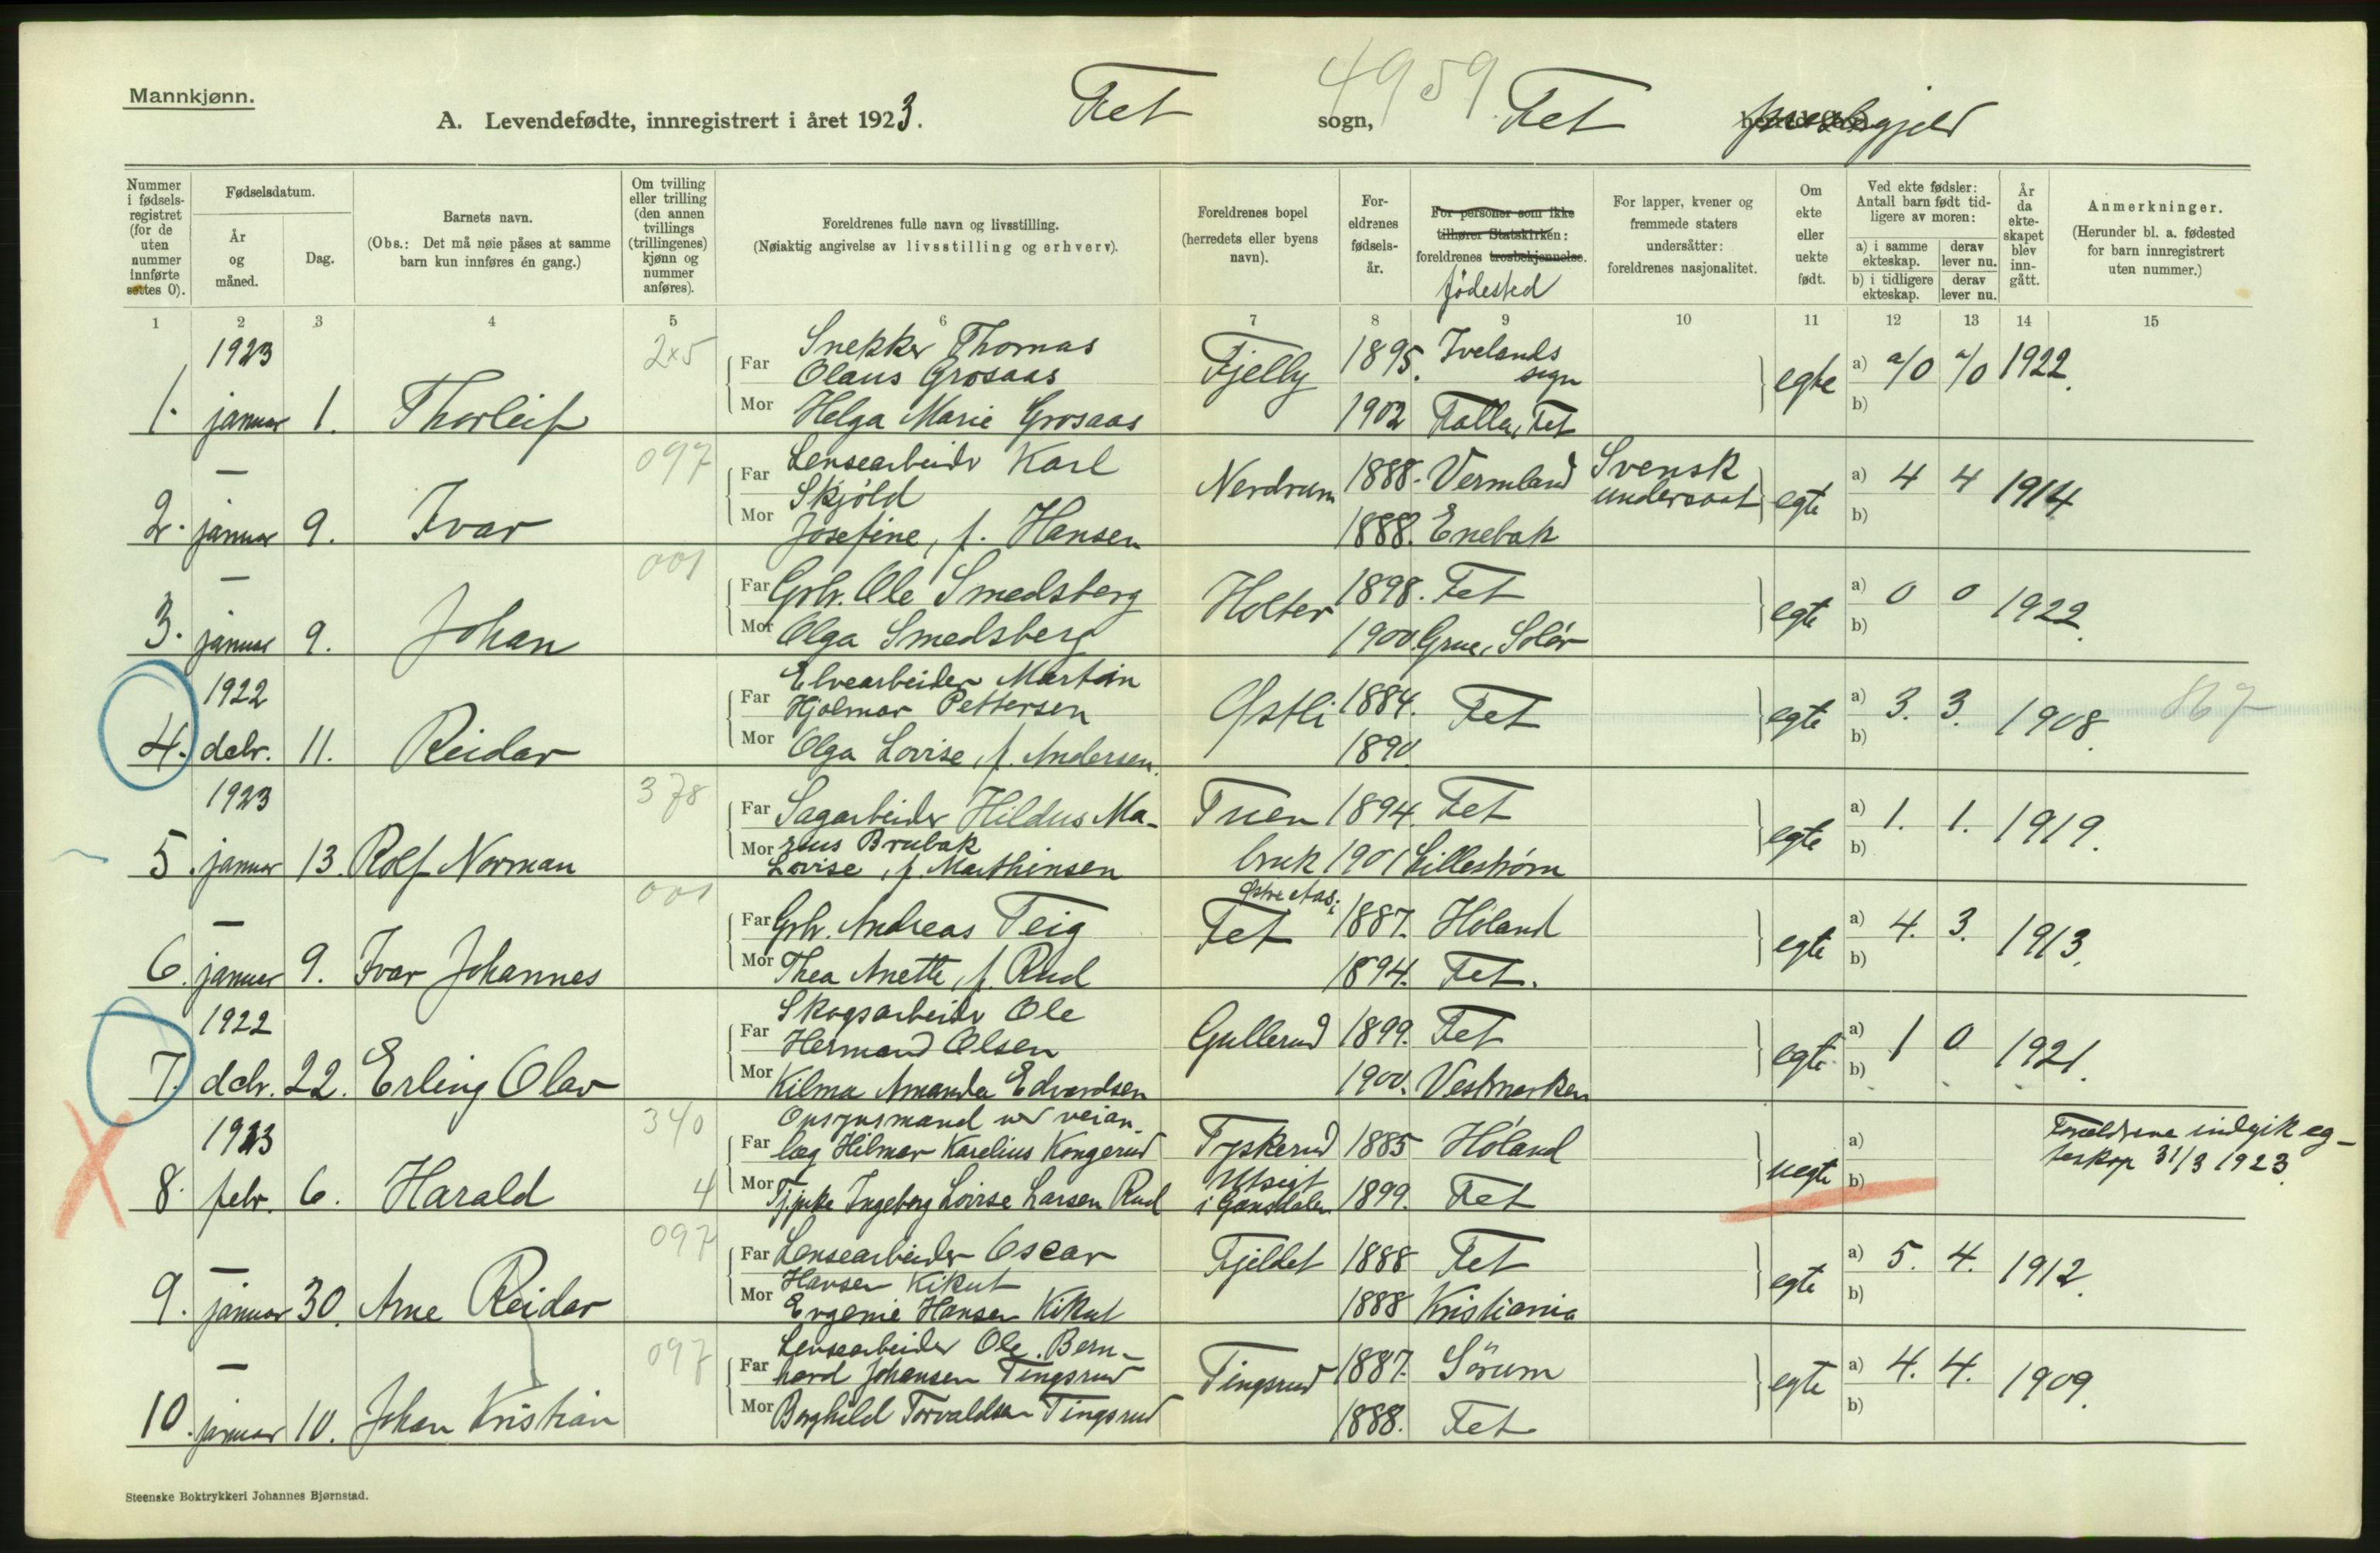 Mannkjønn.
A. Levendefødte, innregistrert i året 1923. Fet sogn, 4959 Fet
Nummer i fødsels-registret (for de uten nummer innførte settes 0).
Fødselsdatum.
År og måned.
Dag.
Barnets navn.
(Obs.: Det må nøie påses at samme barn kun innføres én gang.)
Om tvilling eller trilling (den annen tvillings (trillingenes) kjønn og nummer anføres).
Foreldrenes fulle navn og livsstilling.
(Nøiaktig angivelse av livsstilling og erhverv).
Foreldrenes bopel (herredets eller byens navn).
For-eldrenes fødsels-år.
For personer som ikke tilhører Statskirken: foreldrenes trosbekjennelse.
fødested
For lapper, kvener og fremmede staters undersåtter: foreldrenes nasjonalitet.
Om ekte eller uekte født.
Ved ekte fødsler: Antall barn født tid-ligere av moren:
a) i samme ekteskap.
derav lever nu.
b) i tidligere ekteskap.
derav lever nu.
År da ekte-skapet blev inn-gått.
Anmerkninger.
(Herunder bl. a. fødested for barn innregistrert uten nummer.)
1 2 3 4 5 6 7 8 9 10 11 12 13 14 15
1923 2x5 Far Snekker Thomas Olaus Grosaas Fjelly 1895. Ivelands sogn egte a) a/0 a/0 1922.
1. januar 1. Thorleif Mor Helga Marie Grosaas 1902 Falla, Fet b)
— 097 Far Lensearbeider Karl Skjöld Nerdrum 1888. Vermland Svensk undersaat egte a) 4 4 1914
2. januar 9. Ivar Mor Josefine, f. Hansen 1888. Enebak b)
— 001 Far Grbr. Ole Smedsberg Holter 1898. Fet egte a) 0 0 1922.
3. januar 9. Johan Mor Olga Smedsberg 1900. Grue, Solør b)
1922 Far Elvearbeider Martin Hjalmar Pettersen Østli 1884. Fet egte a) 3. 3. 1908.
4. decbr. 11. Reidar Mor Olga Lovise, f. Andersen. 1890. b)
1923 378 Far Sagarbeider Hildus Ma-rius Brubak Tuen 1894. Fet egte a) 1. 1. 1919.
5. januar 13. Rolf Norman Mor Lovise, f. Mathinsen bruk 1901 Lillestrøm b)
— 001 Far Grbr. Andreas Teig Fet 1887. Høland egte a) 4. 3. 1913.
6. januar 9. Ivar Johannes Mor Thea Anette, f. Rud 1894. Fet. b)
1922 Far Skogsarbeider Ole Hermand Olsen Gullerud 1899. Fet egte a) 1 0 1921.
7. decbr. 22. Erling Olav Mor Kilma Amanda Edvardsen 1900. Vestmarken b)
1923 340 Far Opsynsmand ved veian-læg Hilmar Karelius Kongerud Tyskerud 1885 Høland uegte a) Forældrene indgik eg-teskap 31/3 1923.
8. febr. 6. Harald 4 Mor Tj.pike Ingeborg Lovise Larsen Rud Utsigt i Gansdalen 1899. Fet b)
— 097 Far Lensearbeider Oscar Hansen Kikut Fjeldet 1888 Fet egte a) 5. 4. 1912.
9. januar 30. Arne Reidar Mor Evgenie Hansen Kikut 1888 Kristiania b)
— 097 Far Lensearbeider Ole Bern-hard Johansen Tingsrud Tingsrud 1887. Sörum egte a) 4. 4. 1909.
10. januar 10. Johan Kristian Mor Borghild Torvaldsen Tingsrud 1888. Fet b)
Steenske Boktrykkeri Johannes Bjørnstad.